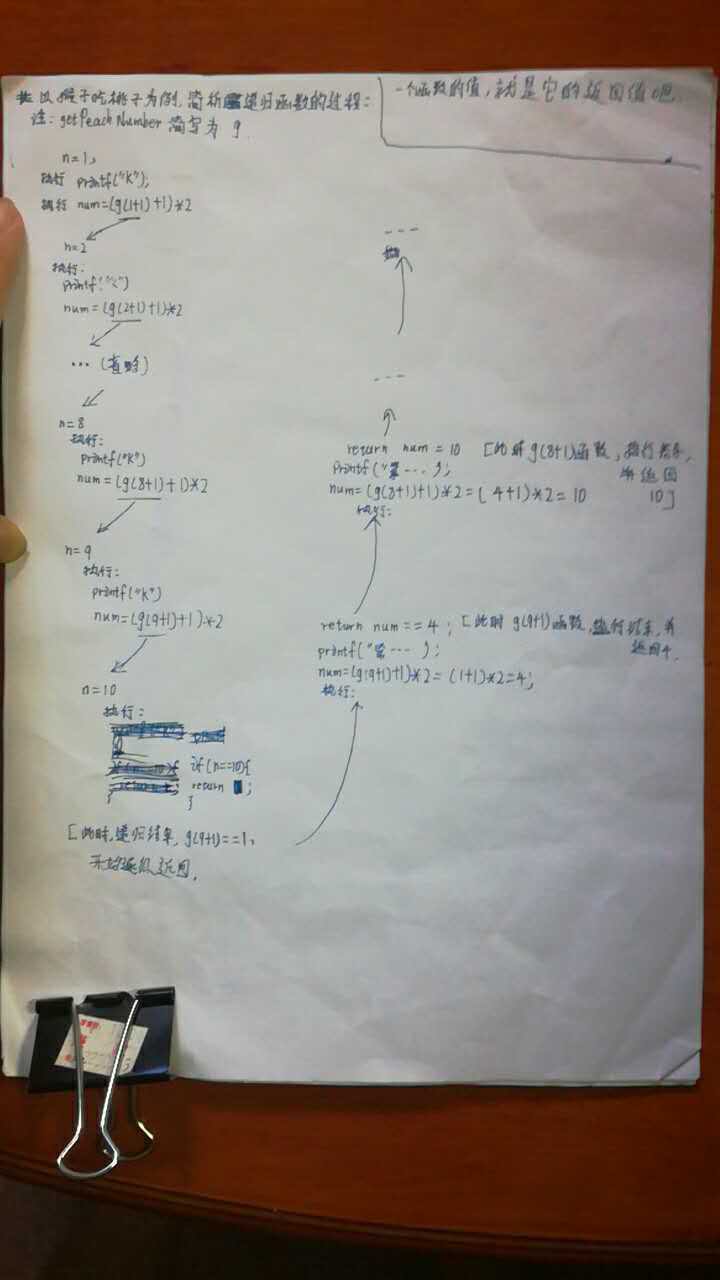 以猴子吃桃子为例,简析递归函数的过程:
注: getPeachNumber 简写为 g.
一个函数的值,就是它的返回值吧.
n=1,
执行 printf("K");
执行 num=(g(1+1)+1)*2
n=2
执行:
printf("K")
num=(g(2+1)+1)*2
... (省略)
n=8
执行:
printf("K")
num=(g(8+1)+1)*2
n=9
执行:
printf("K")
num=(g(9+1)+1)*2
n=10
执行:
if(n==10){
return ;
}
[此时,递归结束, g(9+1)==1,
开始逐级返回.
return num==4; [此时 g(9+1)函数,执行结束,并
返回4.
printf("第... );
num=(g(9+1)+1)*2=(1+1)*2=4;
执行:
return num=10 [此时g(8+1)函数,执行结束,
并返回
10]
printf("第... );
num=(g(8+1)+1)*2=(4+1)*2=10
执行:
---
---